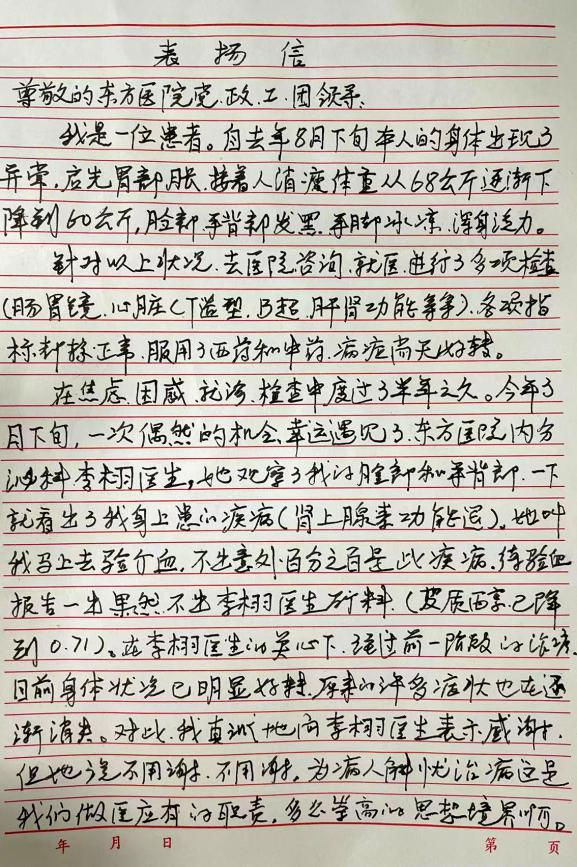 表扬信
尊敬的东方医院党.政.工.团领导:
我是一位患者。自去年8月下旬本人的身体出现了
异常,启先胃部胀.接着人消瘦体重从68公斤逐渐下
降到60公斤,脸部.手背部发黑.手脚冰凉.浑身乏力。
针对以上状况.去医院咨询.就医.进行了多项检查
(肠胃镜.心脏CT造型.B超.肝肾功能等等).各项指
标都接正常.服用了西药和中药.病症尚无好转。
在焦虑.困惑.就诊.检查中度过了半年之久。今年3
月下旬,一次偶然的机会.幸运遇见了.东方医院内分
泌科李栩医生,她观察了我的脸部和手背部.一下
就看出了我身上患的疾病(肾上腺素功能退)。她叫
我马上去验个血.不出意外.百分之百是此疾病.待验血
报告一出果然.不出李栩医生所料.(皮质醇已降
到0.71)。在李栩医生的关心下.经过前一阶段的治疗.
目前身体状况已明显好转.原来的许多症状也在逐
渐消失。对此.我真诚地向李栩医生表示感谢.
但她说不用谢.不用谢.为病人解忧治病这是
我们做医应有的职责,多么崇高的思想境界啊。
年 月 日 第 页